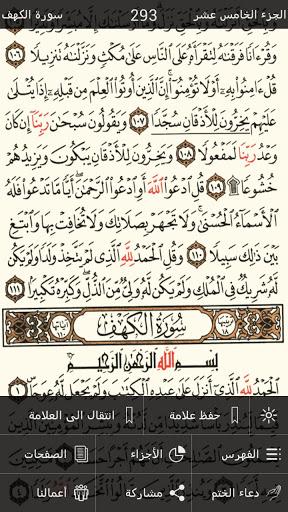 الجزء الخامس عشر 293 سورة الكهف
وَقُرْءَانًا فَرَقْنَٰهُ لِتَقْرَأَهُۥ عَلَى ٱلنَّاسِ عَلَىٰ مُكْثٍ وَنَزَّلْنَٰهُ تَنزِيلًا
١٠٦ قُلْ ءَامِنُوا۟ بِهِۦٓ أَوْ لَا تُؤْمِنُوٓا۟ إِنَّ ٱلَّذِينَ أُوتُوا۟ ٱلْعِلْمَ مِن قَبْلِهِۦٓ إِذَا يُتْلَىٰ
عَلَيْهِمْ يَخِرُّونَ لِلْأَذْقَانِ سُجَّدًا ١٠٧ وَيَقُولُونَ سُبْحَٰنَ رَبِّنَآ إِن كَانَ
وَعْدُ رَبِّنَا لَمَفْعُولًا ١٠٨ وَيَخِرُّونَ لِلْأَذْقَانِ يَبْكُونَ وَيَزِيدُهُمْ
خُشُوعًا ۩ ١٠٩ قُلِ ٱدْعُوا۟ ٱللَّهَ أَوِ ٱدْعُوا۟ ٱلرَّحْمَٰنَ أَيًّا مَّا تَدْعُوا۟ فَلَهُ
ٱلْأَسْمَآءُ ٱلْحُسْنَىٰ وَلَا تَجْهَرْ بِصَلَاتِكَ وَلَا تُخَافِتْ بِهَا وَٱبْتَغِ
بَيْنَ ذَٰلِكَ سَبِيلًا ١١٠ وَقُلِ ٱلْحَمْدُ لِلَّهِ ٱلَّذِى لَمْ يَتَّخِذْ وَلَدًا وَلَمْ يَكُن
لَّهُۥ شَرِيكٌ فِى ٱلْمُلْكِ وَلَمْ يَكُن لَّهُۥ وَلِىٌّ مِّنَ ٱلذُّلِّ وَكَبِّرْهُ تَكْبِيرًۢا ١١١
سُورَةُ ٱلْكَهْفِ
بِسْمِ ٱللَّهِ ٱلرَّحْمَٰنِ ٱلرَّحِيمِ
ٱلْحَمْدُ لِلَّهِ ٱلَّذِىٓ أَنزَلَ عَلَىٰ عَبْدِهِ ٱلْكِتَٰبَ وَلَمْ يَجْعَل لَّهُۥ عِوَجَا ١
حفظ علامة انتقال الى العلامة
الفهرس الأجزاء الصفحات
دعاء الختم مشاركة أعمالنا